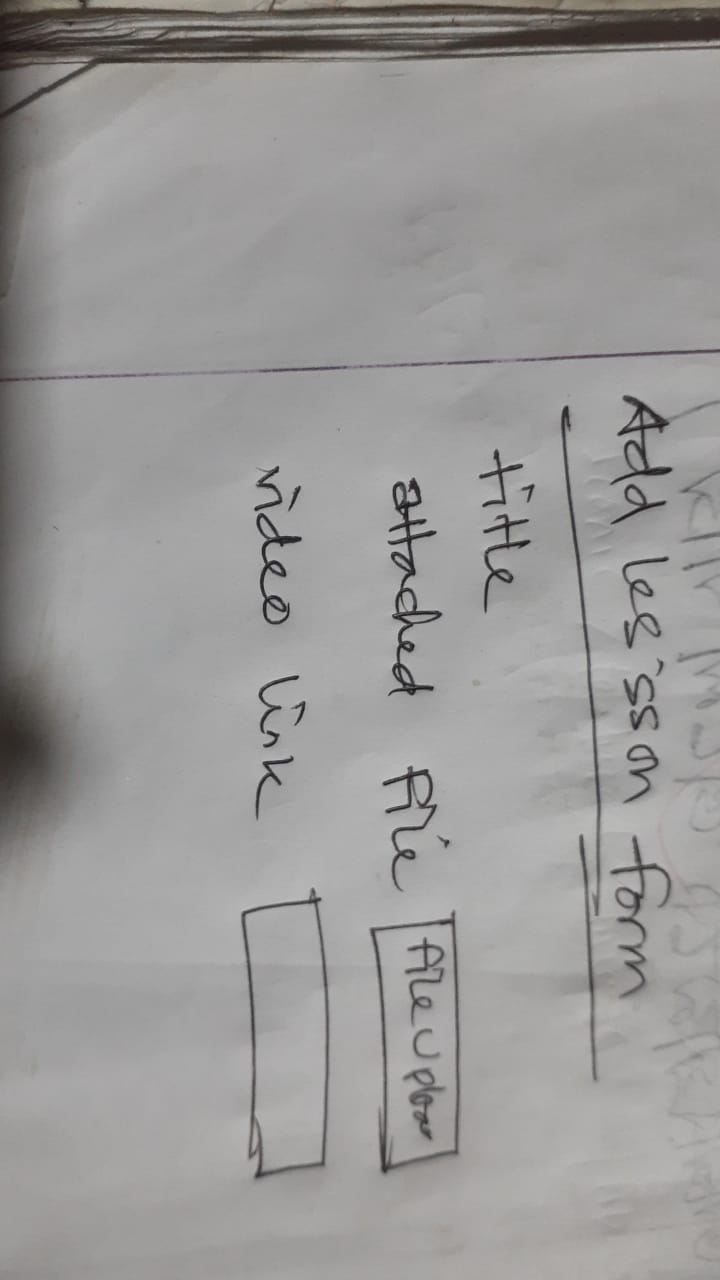 Add lesisson form
title
attached file file uploar
video link